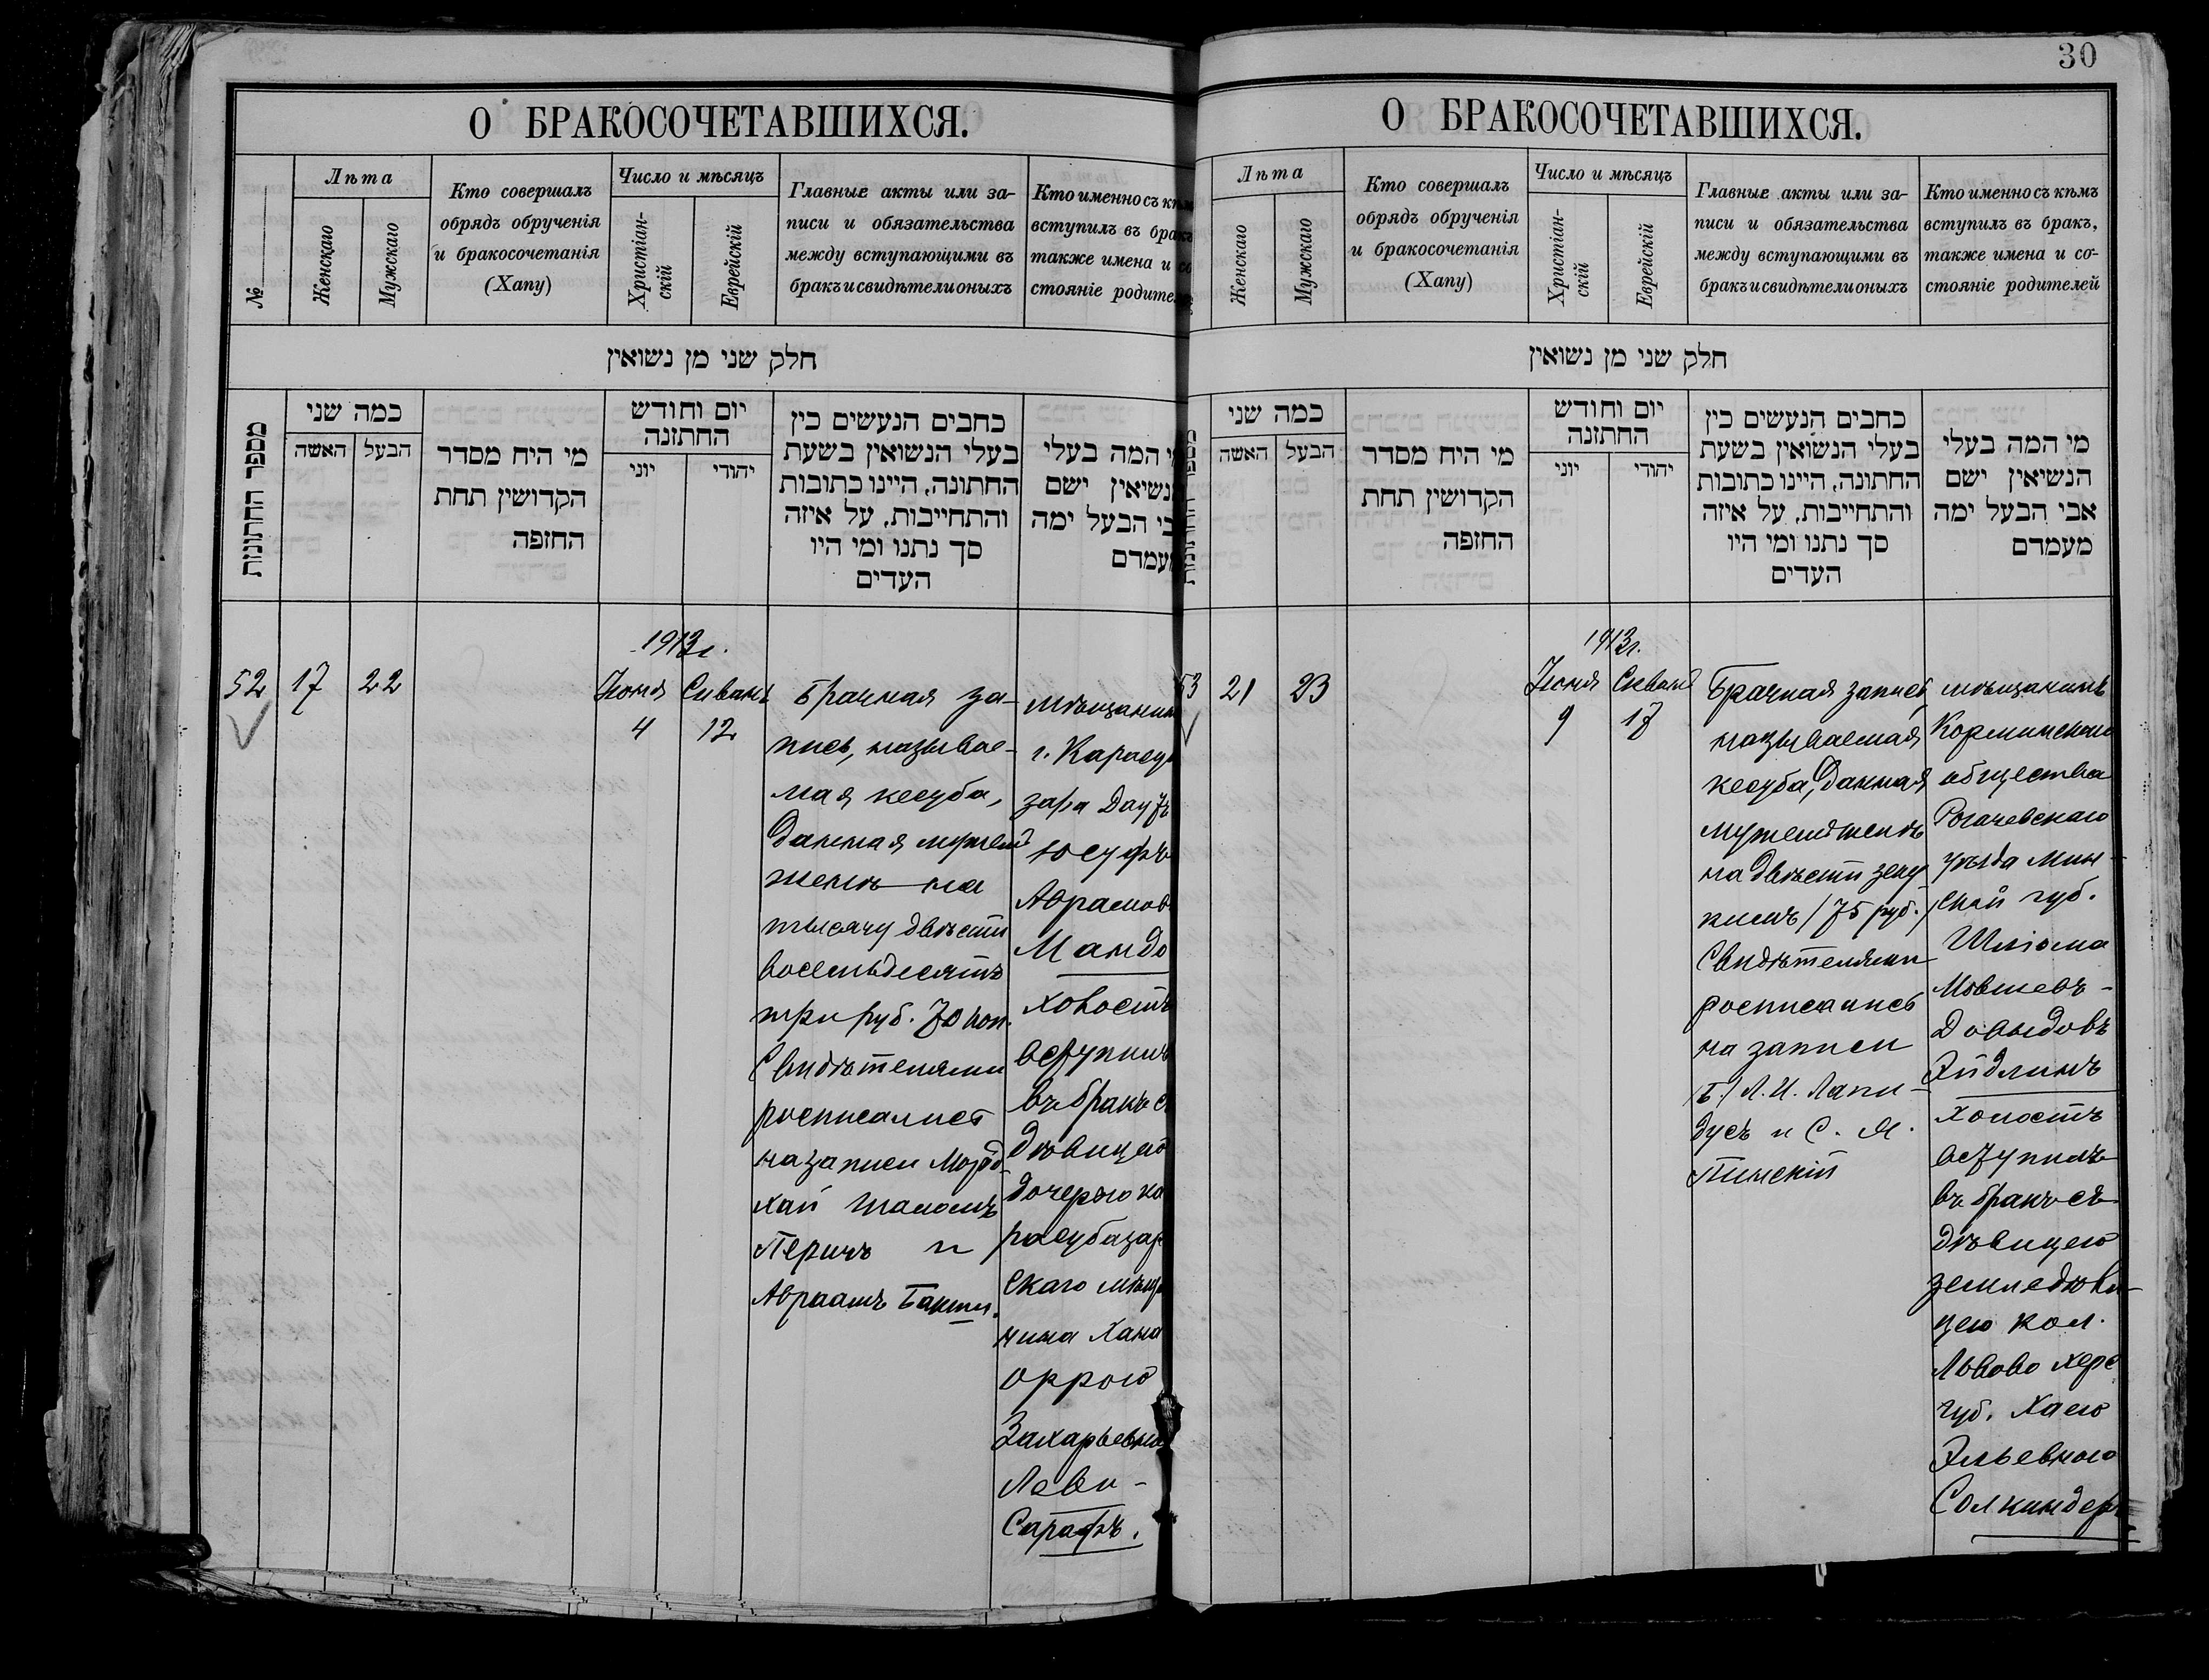 30
О БРАКОСОЧЕТАВШИХСЯ.
№
Лѣта
Женскаго
Мужскаго
Кто совершалъ
обрядъ обрученія
и бракосочетанія
(Хапу)
Число и мѣсяцъ
Христіан-
скій
Еврейскій
Главные акты или за-
писи и обязательства
между вступающими въ
бракъ и свидѣтели оныхъ
Кто именно съ
вступилъ въ бракъ
также имена и со
стояніе родителей
חלק שני מן נשואין
מספר החתונות
כמה שני
האשה
הבעל
מי היח מסדר
הקדושין תחת
החופה
יום וחודש
החתונה
יוני
יהודי
כתבים הנעשים בין
בעלי הנשואין בשעת
החתונה, היינו כתובות
והתחייבות, על איזה
סך נתנו ומי היו
העדים
המה בעלי
הנשיאין ישם
הבעל ימה
מעמדם
1913 г.
52
17
22
Іюня
4
Сивань
12
Брачная за-
пись, называе-
мая кесуба,
данная мужемъ
женѣ на
тысячу двѣсти
восемьдесятъ
три руб. 70 коп.
Свидѣтелями
росписались
на записи Морд-
хай Шаломъ
Перичъ и
Авраамъ Бакши.
мѣщанинъ
г. Карасу
зара Даутъ
Юсуфъ
Аврамов
Мандо
холостъ
вступилъ
въ бракъ с
дѣвицею
дочерью ка
расубазар
скаго мѣща
нина Хана
Оррою
Захарьевно
Леви-
Сарафъ.
О БРАКОСОЧЕТАВШИХСЯ.
Лѣта
Женскаго
Мужскаго
Кто совершалъ
обрядъ обрученія
и бракосочетанія
(Хапу)
Число и мѣсяцъ
Христіан-
скій
Еврейскій
Главные акты или за-
писи и обязательства
между вступающими въ
бракъ и свидѣтели оныхъ
Кто именно съ кѣмъ
вступилъ въ бракъ,
также имена и со-
стояніе родителей
חלק שני מן נשואין
כמה שני
האשה
הבעל
מי היח מסדר
הקדושין תחת
החופה
יום וחודש
החתונה
יוני
יהודי
כתבים הנעשים בין
בעלי הנשואין בשעת
החתונה, היינו כתובות
והתחייבות, על איזה
סך נתנו ומי היו
העדים
מי המה בעלי
הנשיאין ישם
אבי הבעל ימה
מעמדם
1913 г.
53
21
23
Іюня
9
Сивань
17
Брачная запись,
называемая
кесуба, данная
мужемъ женѣ
на двѣсти зеку
кимъ /75 руб./
Свидѣтелями
росписались
на записи
/Б./ Л. И. Лапи-
дусъ и С. Я.
Пинскій
мѣщанинъ
Корминскаго
общества
Рогачевскаго
уѣзда Мин-
ской губ.
Шліома
Мовшевъ-
Довыдовъ
Эйдлинъ
холостъ
вступилъ
въ бракъ съ
дѣвицею
земледѣли-
цею кол.
Львово Херс
губ. Хаею
Эльевною
Солкиндеръ